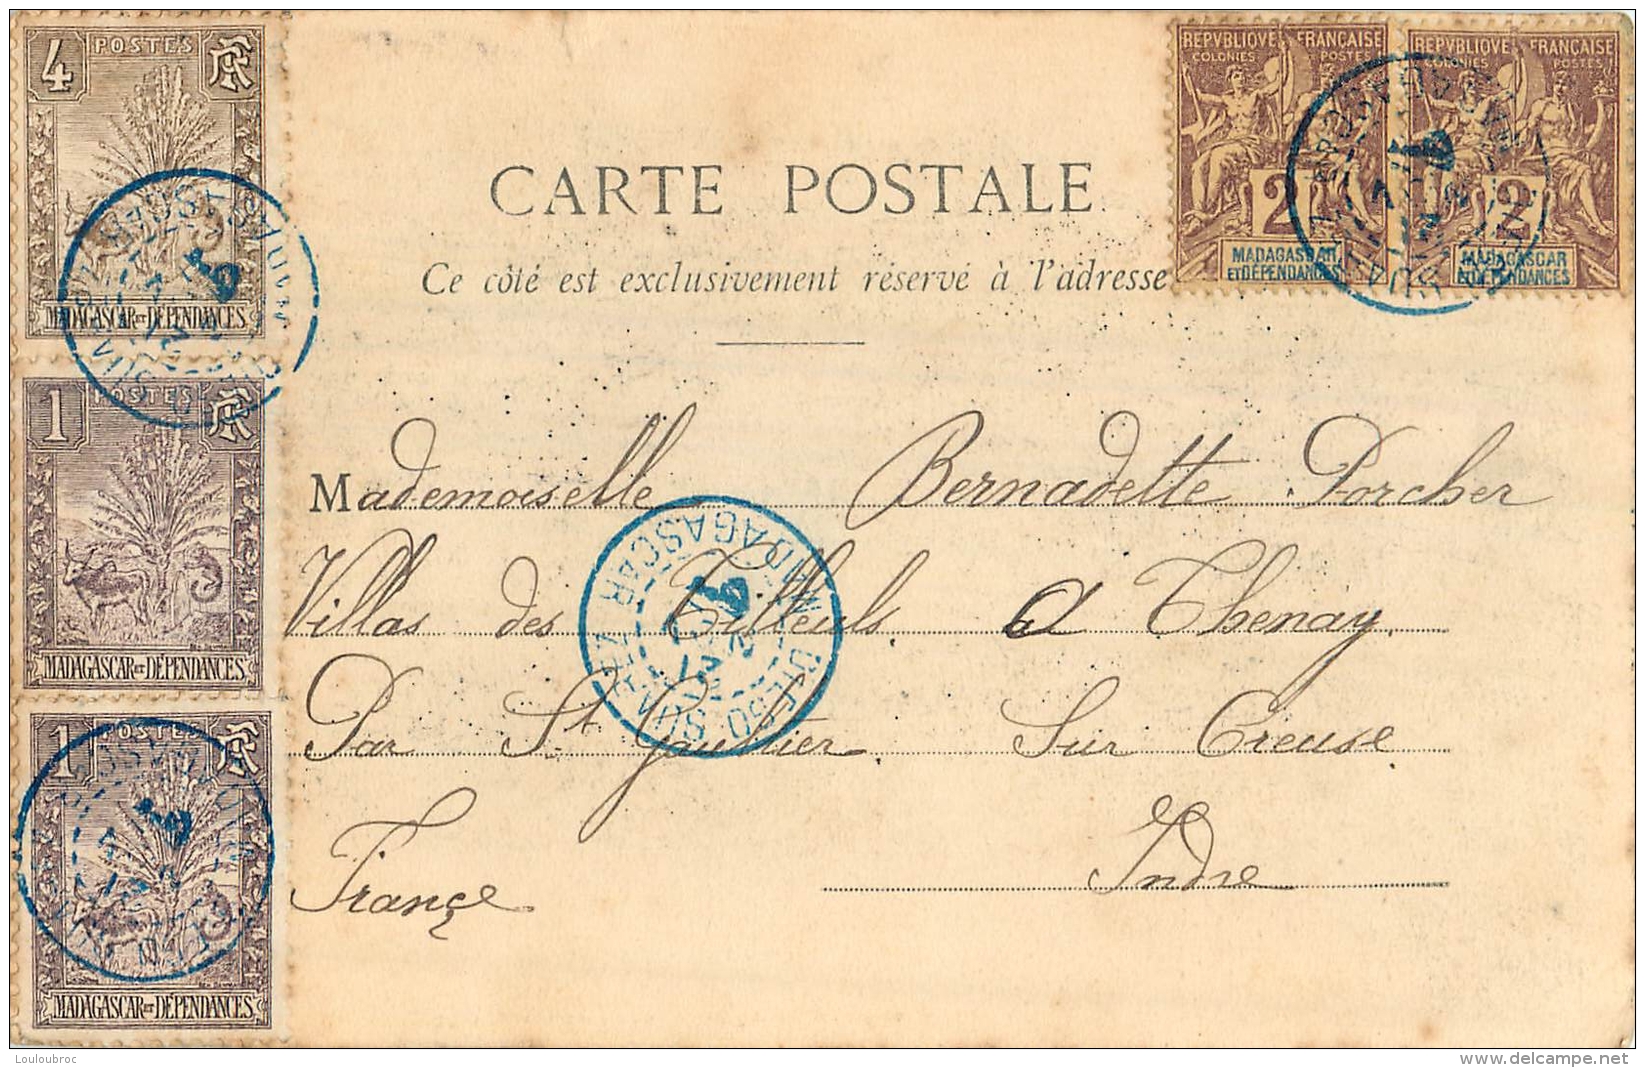 4 POSTES RF
MADAGASCAR ET DÉPENDANCES
1 POSTES RF
MADAGASCAR ET DÉPENDANCES
1 POSTES RF
MADAGASCAR ET DÉPENDANCES
REPVBLIQVE FRANÇAISE
COLONIES POSTES
2
MADAGASCAR
ET DÉPENDANCES
REPVBLIQVE FRANÇAISE
COLONIES POSTES
2
MADAGASCAR
ET DÉPENDANCES
CARTE POSTALE
Ce côté est exclusivement réservé à l'adresse
Mademoiselle Bernadette Porcher
Villas des Tilleuls a Thenay
Par St Gaultier Sur Creuse
Indre
Françe
MADAGASCAR
DIEGO SUAREZ
Louloubroc
www.delcampe.net